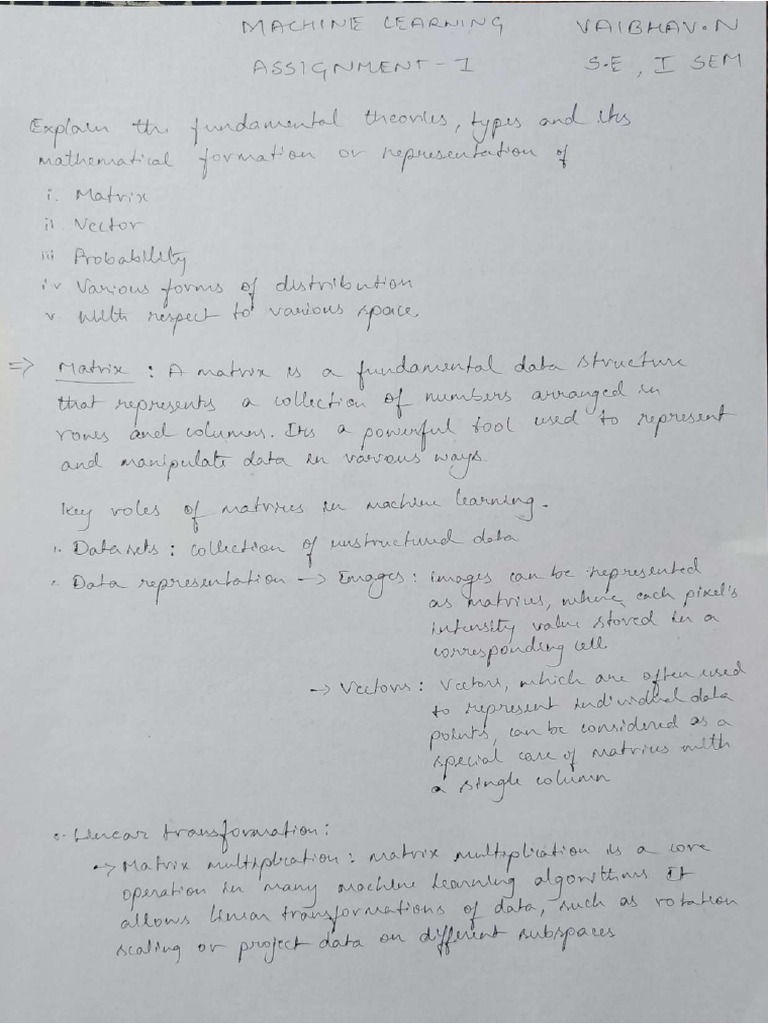 MACHINE LEARNING VAIBHAV.N
ASSIGNMENT-1 S.E, I SEM
Explain the fundamental theories, types and its
mathematical formation or representation of
i. Matrix
ii Vector
iii Probability
iv Various forms of distribution
v With respect to various space.
⇒ Matrix : A matrix is a fundamental data structure
that represents a collection of numbers arranged in
rows and columns. Its a powerful tool used to represent
and manipulate data in various ways.
Key roles of matrices in machine learning.
Datasets : collection of unstructured data
Data representation → Images : images can be represented
as matrices, where each pixel's
intensity value stored in a
corresponding cell.
→ Vectors : Vectors, which are often used
to represent individual data
points, can be considered as a
special case of matrices with
a single column
Linear transformation :
→ Matrix multiplication : matrix multiplication is a core
operation in many machine learning algorithms It
allows linear transformations of data, such as rotation
scaling or project data on different subspaces